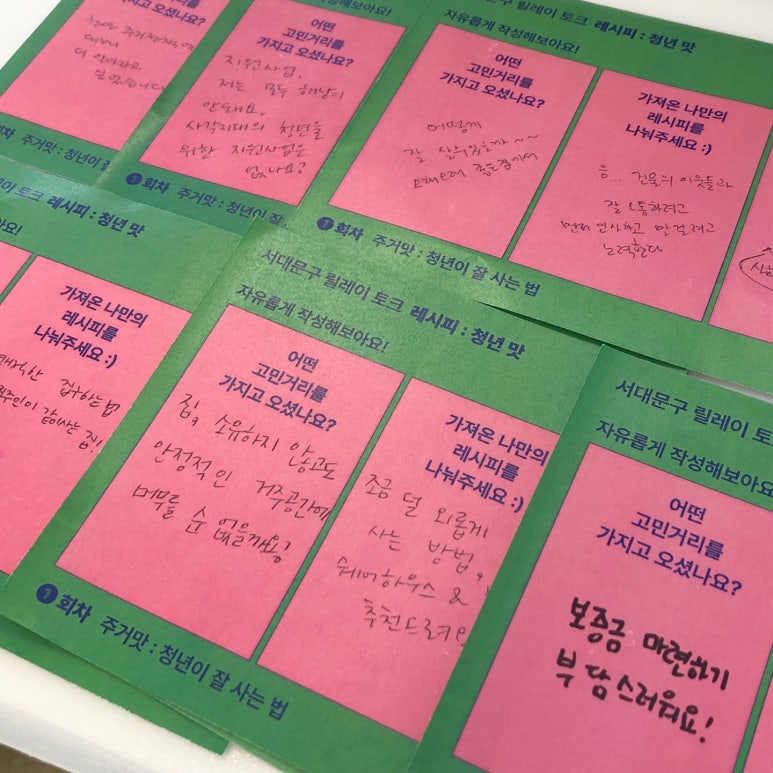 고민거리를
가지고 오셨나요?
주거정책에
더 알아가고
싶었습니다
성해보아요!
어떤
고민거리를
가지고 오셨나요?
지원사업.
저는 모두 해당이
안돼요.
사각지대의 청년을
위한 지원사업은
없나요?
1회차 주거맛 : 청년이 잘
구 릴레이 토크 레시피 : 청년 맛
자유롭게 작성해보아요!
어떤
고민거리를
가지고 오셨나요?
어떻게
잘 살 수 있을까~~
오래오래 좋은집에서
가져온 나만의
레시피를
나눠주세요 :)
음... 건물의 이웃들과
잘 소통하려고
먼저 인사하고 말 걸려고
노력한다
1회차 주거맛 : 청년이 잘 사는 법
릴레이 토크 레시피 : 청년 맛
아요!
가져온 나만의
레시피를
나눠주세요 :)
집구하는법
같이사는 집!
서대문구 릴레이 토크 레시피 : 청년 맛
자유롭게 작성해보아요!
어떤
고민거리를
가지고 오셨나요?
집, 소유하지 않고도
안정적인 거주공간에
머무를 순 없을까용?
가져온 나만의
레시피를
나눠주세요 :)
조금 덜 외롭게
사는 방법,
쉐어하우스 &
추천드려요
1회차 주거맛 : 청년이 잘 사는 법
서대문구 릴레이 토
자유롭게 작성해보아요
어떤
고민거리를
가지고 오셨나요?
보증금 마련하기
부담스러워요!